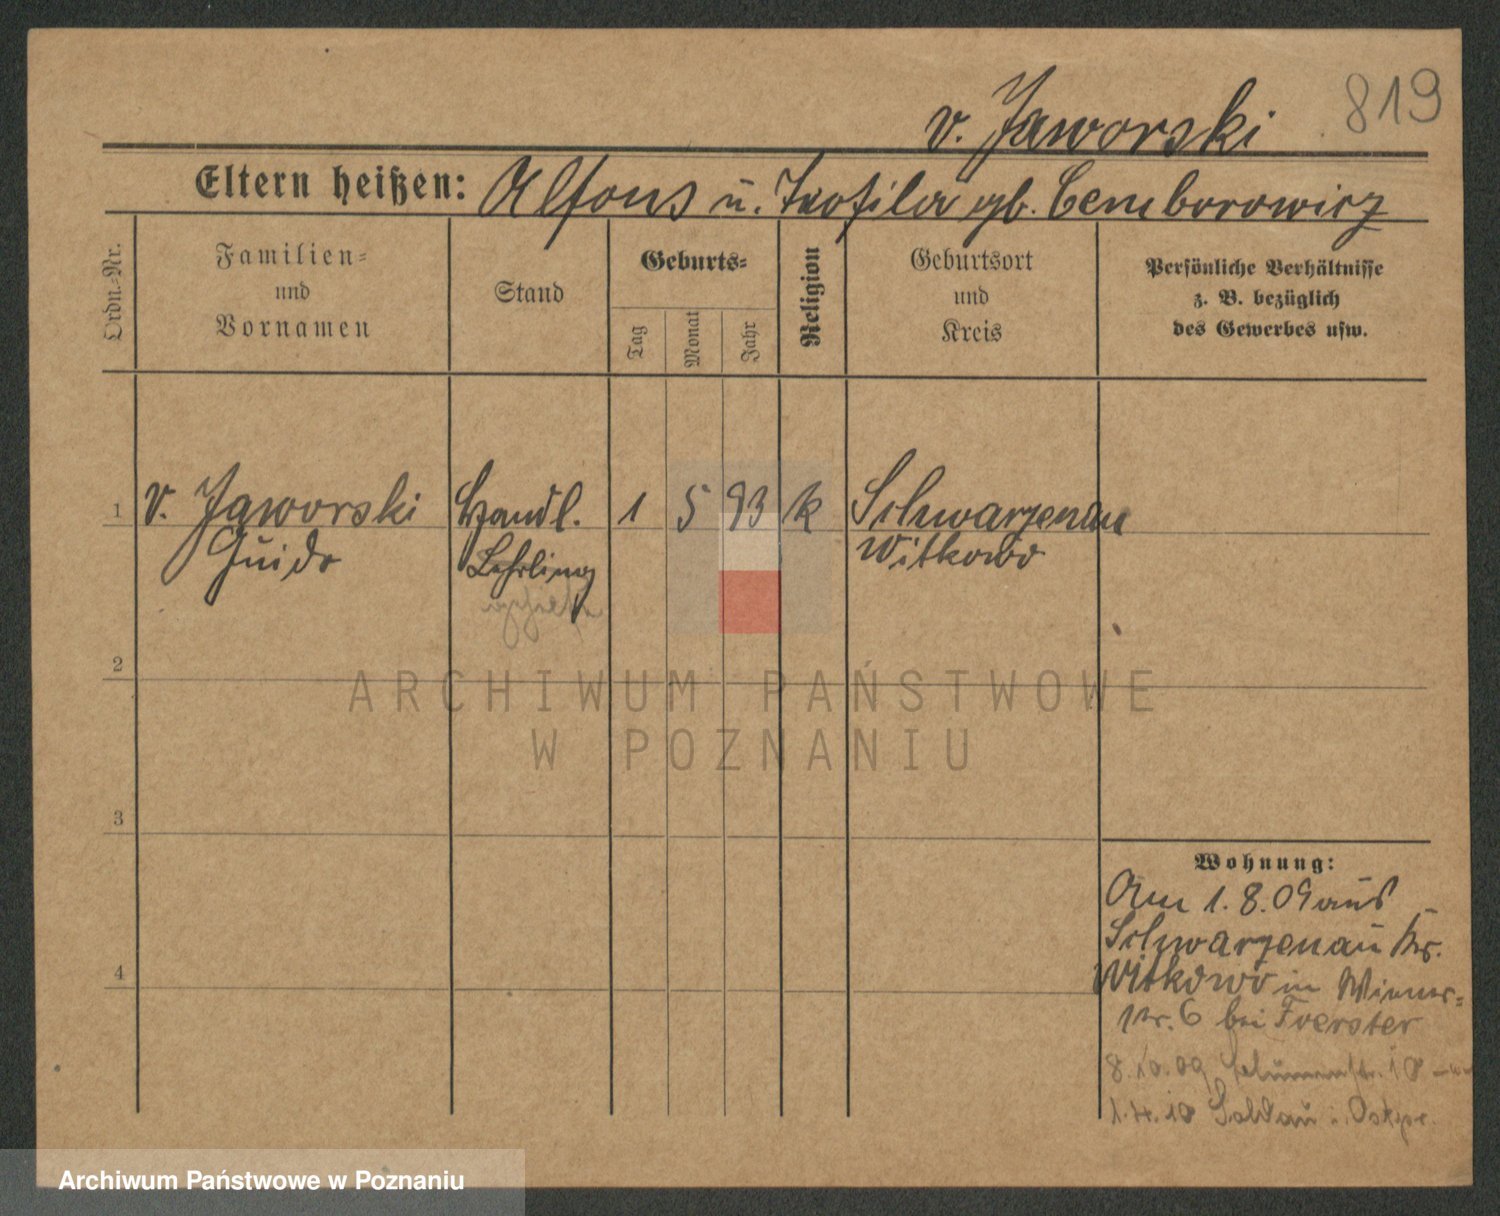 819
v. Jaworski
Eltern heißen: Alfons u. Teofila gb. Cemborowicz
Ordn.-Nr.
Familien-
und
Vornamen
Stand
Geburts-
Tag
Monat
Jahr
Religion
Geburtsort
und
Kreis
Persönliche Verhältnisse
z. B. bezüglich
des Gewerbes usw.
1 v. Jaworski Handl. 1 5 93 k Schwarzenau
Guido Lehrling Witkowo
2
3
4
Wohnung:
Am 1.8.09 aus
Schwarzenau Kr.
Witkowo in
6 bei Foerster
8.10.09 18
1.4.10 Soldau i. Ostpr.
ARCHIWUM PAŃSTWOWE
W POZNANIU
Archiwum Państwowe w Poznaniu